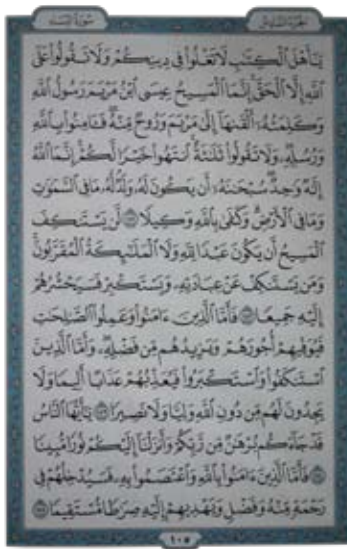 الجزء السادس
سورة النساء
يَـٰٓأَهۡلَ ٱلۡكِتَٰبِ لَا تَغۡلُواْ فِي دِينِكُمۡ وَلَا تَقُولُواْ عَلَى
ٱللَّهِ إِلَّا ٱلۡحَقَّۚ إِنَّمَا ٱلۡمَسِيحُ عِيسَى ٱبۡنُ مَرۡيَمَ رَسُولُ ٱللَّهِ
وَكَلِمَتُهُۥٓ أَلۡقَىٰهَآ إِلَىٰ مَرۡيَمَ وَرُوحٞ مِّنۡهُۖ فَـَٔامِنُواْ بِٱللَّهِ
وَرُسُلِهِۦۖ وَلَا تَقُولُواْ ثَلَٰثَةٌۚ ٱنتَهُواْ خَيۡرٗا لَّكُمۡۚ إِنَّمَا ٱللَّهُ
إِلَٰهٞ وَٰحِدٞۖ سُبۡحَٰنَهُۥٓ أَن يَكُونَ لَهُۥ وَلَدٞۘ لَّهُۥ مَا فِي ٱلسَّمَٰوَٰتِ
وَمَا فِي ٱلۡأَرۡضِۗ وَكَفَىٰ بِٱللَّهِ وَكِيلٗا ١٧١ لَّن يَسۡتَنكِفَ
ٱلۡمَسِيحُ أَن يَكُونَ عَبۡدٗا لِّلَّهِ وَلَا ٱلۡمَلَـٰٓئِكَةُ ٱلۡمُقَرَّبُونَۚ
وَمَن يَسۡتَنكِفۡ عَنۡ عِبَادَتِهِۦ وَيَسۡتَكۡبِرۡ فَسَيَحۡشُرُهُمۡ
إِلَيۡهِ جَمِيعٗا ١٧٢ فَأَمَّا ٱلَّذِينَ ءَامَنُواْ وَعَمِلُواْ ٱلصَّـٰلِحَٰتِ
فَيُوَفِّيهِمۡ أُجُورَهُمۡ وَيَزِيدُهُم مِّن فَضۡلِهِۦۖ وَأَمَّا ٱلَّذِينَ
ٱسۡتَنكَفُواْ وَٱسۡتَكۡبَرُواْ فَيُعَذِّبُهُمۡ عَذَابًا أَلِيمٗا وَلَا
يَجِدُونَ لَهُم مِّن دُونِ ٱللَّهِ وَلِيّٗا وَلَا نَصِيرٗا ١٧٣ يَـٰٓأَيُّهَا ٱلنَّاسُ
قَدۡ جَآءَكُم بُرۡهَٰنٞ مِّن رَّبِّكُمۡ وَأَنزَلۡنَآ إِلَيۡكُمۡ نُورٗا مُّبِينٗا
١٧٤ فَأَمَّا ٱلَّذِينَ ءَامَنُواْ بِٱللَّهِ وَٱعۡتَصَمُواْ بِهِۦ فَسَيُدۡخِلُهُمۡ فِي
رَحۡمَةٖ مِّنۡهُ وَفَضۡلٖ وَيَهۡدِيهِمۡ إِلَيۡهِ صِرَٰطٗا مُّسۡتَقِيمٗا ١٧٥
١٠٥